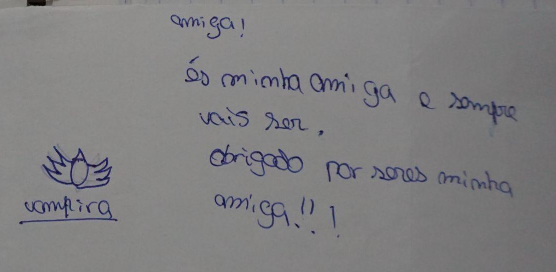 amiga!
és minha amiga e sempre
vais ser.
obrigado por seres minha
amiga!!!
vampira